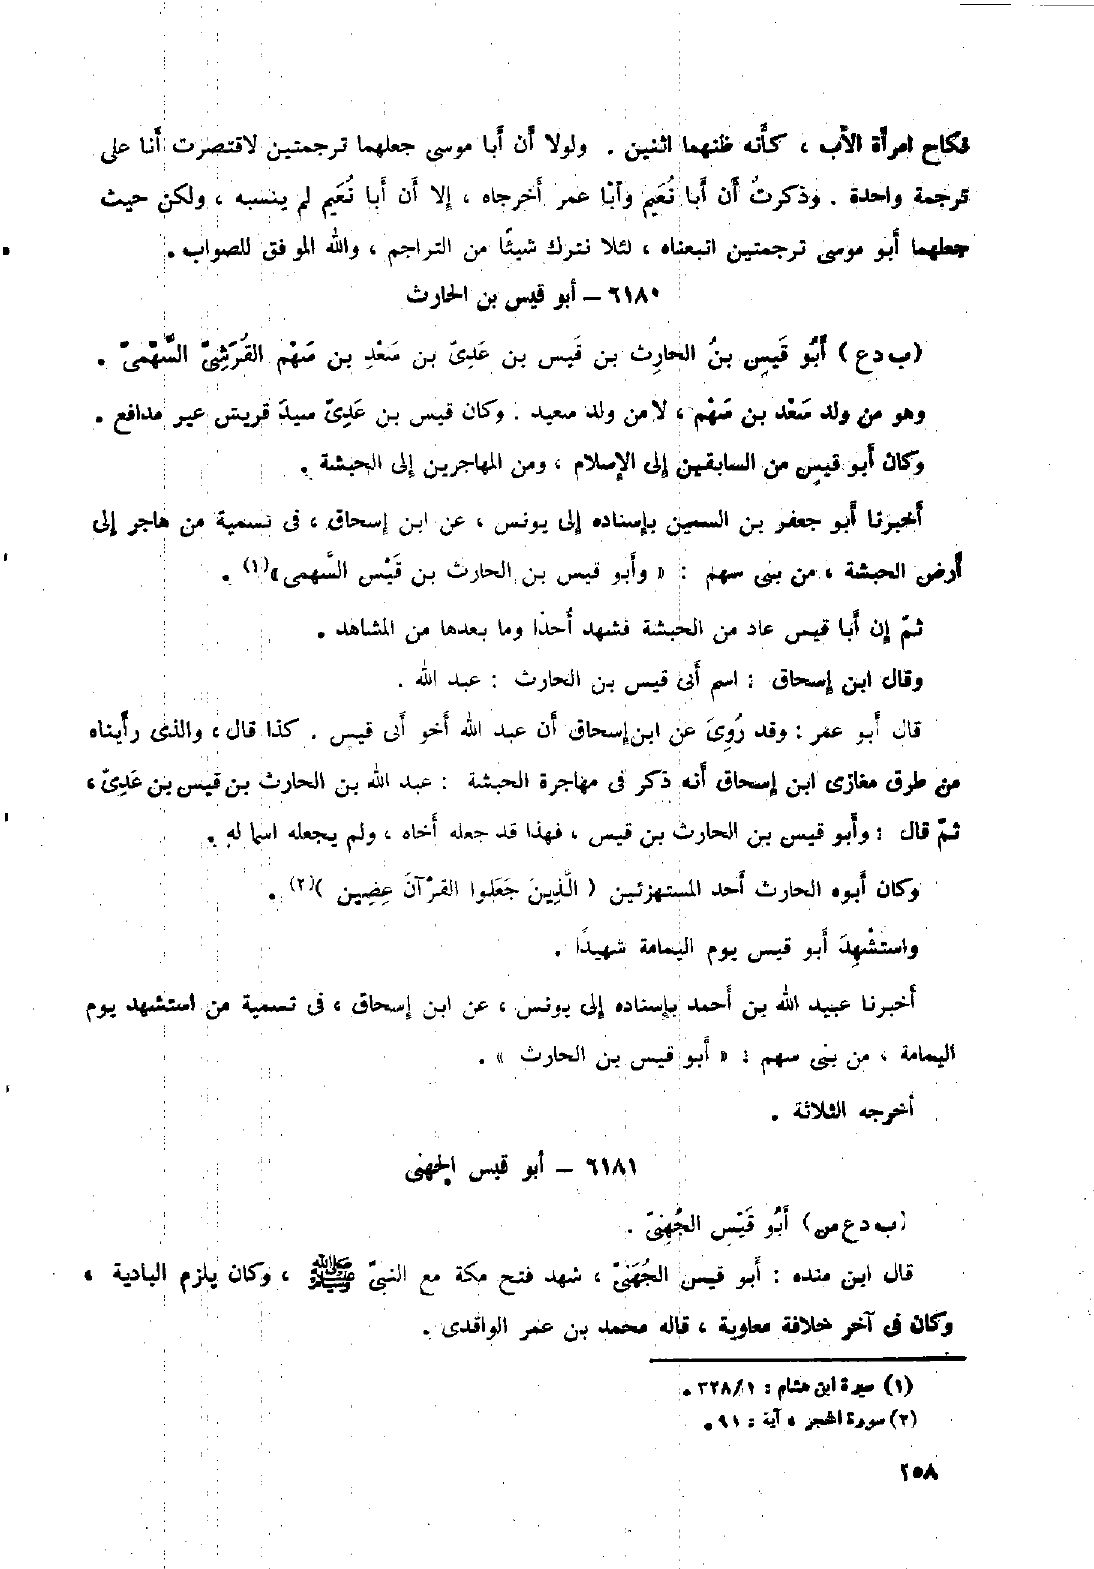 نكاح امرأة الأب ، كأنه ظنهما اثنين . ولولا أن أبا موسى جعلهما ترجمتين لاقتصرت أنا على
ترجمة واحدة . وذكرتُ أن أبا نُعَيم وأبا عمر أخرجاه ، إلا أن أبا نُعَيم لم ينسبه ، ولكن حيث
جعلهما أبو موسى ترجمتين اتبعناه ، لئلا نترك شيئًا من التراجم ، والله الموفق للصواب .
٦١٨٠ – أبو قيس بن الحارث
(ب د ع) أَبُو قَيسِ بنُ الحارِث بن قَيس بن عَدِىّ بن سَعْدِ بن سَهْم القُرَشِىّ السَّهْمىّ .
وهو من ولد سَعْد بن سَهْم ، لا من ولد سعيد . وكان قيس بن عَدِىّ سيدَ قريش غير مدافع .
وكان أبو قيسٍ من السابقين إلى الإسلام ، ومن المهاجرين إلى الحبشة .
أخبرنا أبو جعفر بن السمين بإسناده إلى يونس ، عن ابن إسحاق ، فى تسمية من هاجر إلى
أرض الحبشة ، من بنى سهم : « وأبو قيس بن الحارث بن قَيْس السَّهمى »(١) .
ثمّ إن أبا قيس عاد من الحبشة فشهد أُحدًا وما بعدها من المشاهد .
وقال ابن إسحاق : اسم أبى قيس بن الحارث : عبد الله .
قال أبو عمر : وقد رُوِىَ عن ابن إسحاق أن عبد الله أخو أبى قيس . كذا قال ، والذى رأيناه
من طرق مغازى ابن إسحاق أنه ذكر فى مهاجرة الحبشة : عبد الله بن الحارث بن قيس بن عَدِىّ ،
ثمّ قال : وأبو قيس بن الحارث بن قيس ، فهذا قد جعله أخاه ، ولم يجعله اسما له .
وكان أبوه الحارث أحد المستهزئين ( الَّذِينَ جَعَلُوا القرْآنَ عِضِين )(٢) .
واستُشْهِدَ أبو قيس يوم اليمامة شهيدًا .
أخبرنا عبيد الله بن أحمد بإسناده إلى يونس ، عن ابن إسحاق ، فى تسمية من استشهد يوم
اليمامة ، من بنى سهم : « أبو قيس بن الحارث » .
أخرجه الثلاثة .
٦١٨١ – أبو قيس الجهنى
(ب د ع س) أَبُو قَيْسِ الجُهنِىّ .
قال ابن منده : أبو قيس الجُهَنىّ ، شهد فتح مكة مع النبىّ ﷺ ، وكان يلزم البادية ،
وكان فى آخر خلافة معاوية ، قاله محمد بن عمر الواقدى .
(١) سيرة ابن هشام : ٣٢٨/١ .
(٢) سورة الحجر ، آية : ٩١ .
٢٥٨